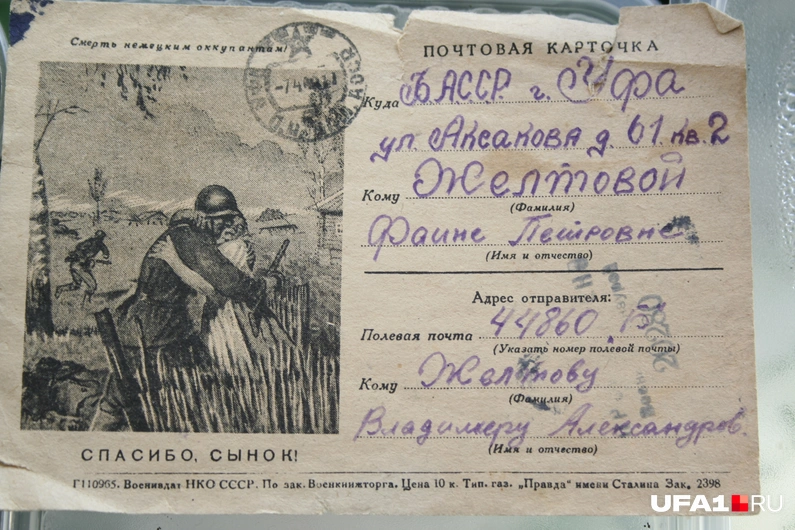 Смерть немецким оккупантам!
СПАСИБО, СЫНОК!
ПОЧТОВАЯ КАРТОЧКА
Куда БАССР г. Уфа
ул. Аксакова д. 61 кв. 2
Кому Желтовой
(Фамилия)
Фаине Петровне
(Имя и отчество)
Адрес отправителя:
Полевая почта 44860
(Указать номер полевой почты)
Кому Желтову
(Фамилия)
Владимеру Александров.
(Имя и отчество)
Г110965. Воениздат НКО СССР. По зак. Военкнижторга. Цена 10 к. Тип. газ. „Правда" имени Сталина Зак. 2398
UFA1.RU